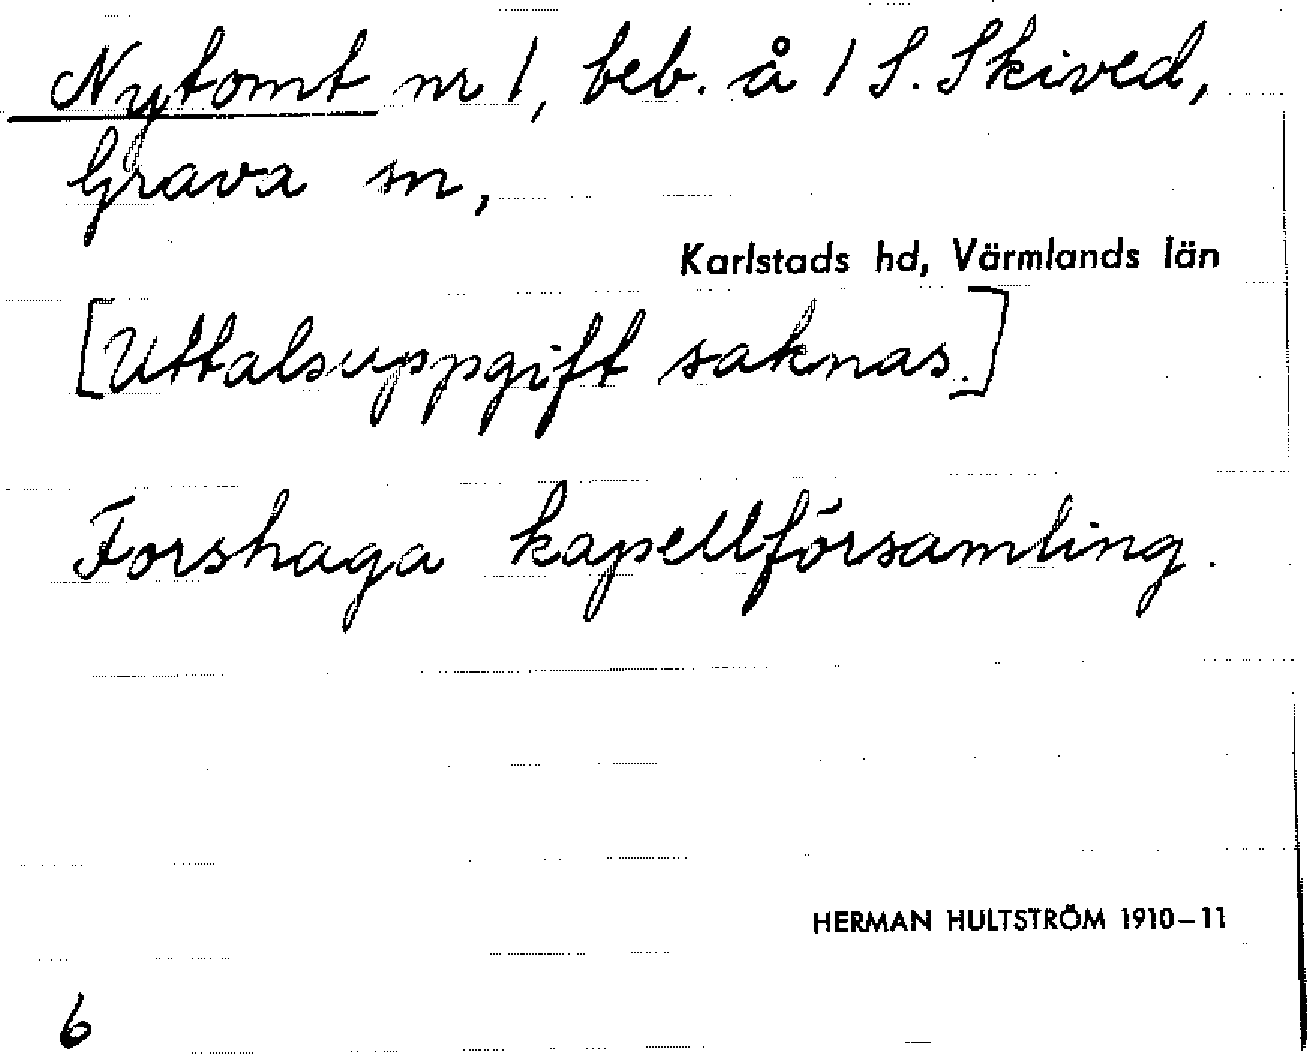 Nytomt nr 1, beb. å 1 S. Skived,
Grava sn,
Karlstads hd, Värmlands län
[Uttalsuppgift saknas.]
Forshaga kapellförsamling.
HERMAN HULTSTRÖM 1910–11
6